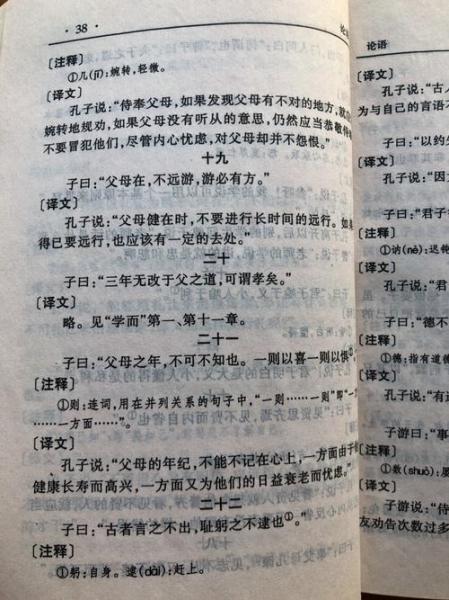 · 38 ·
〔注释〕
①几(jī)：婉转，轻微。
〔译文〕
孔子说：“侍奉父母，如果发现父母有不对的地方，就
婉转地规劝，如果父母没有听从的意思，仍然应当恭敬
不要冒犯他们，尽管内心忧虑，对父母却并不怨恨。”
十九
子曰：“父母在，不远游，游必有方。”
〔译文〕
孔子说：“父母健在时，不要进行长时间的远行。如果
得已要远行，也应该有一定的去处。”
二十
子曰：“三年无改于父之道，可谓孝矣。”
〔译文〕
略。见“学而”第一、第十一章。
二十一
子曰：“父母之年，不可不知也。一则以喜一则以惧①
〔注释〕
①则：连词，用在并列关系的句子中，“一则……一则”即“一
……一方面……”。
〔译文〕
孔子说：“父母的年纪，不能不记在心上，一方面由于
健康长寿而高兴，一方面又为他们的日益衰老而忧虑。”
二十二
子曰：“古者言之不出，耻躬之不逮也①。”
〔注释〕
①躬：自身。逮(dài)：赶上。
论语
〔译文〕
孔子说：“古人
为与自己的言语不
子曰：“以约失
〔译文〕
孔子说：“因
子曰：“君子
〔注释〕
①讷(nè)：迟钝
〔译文〕
孔子说：“君
子曰：“德不
〔注释〕
①德：指有道德
〔译文〕
孔子说：“有道
子游曰：“事
〔注释〕
①数(shuò)：
〔译文〕
子游说：“侍
友劝告次数过多